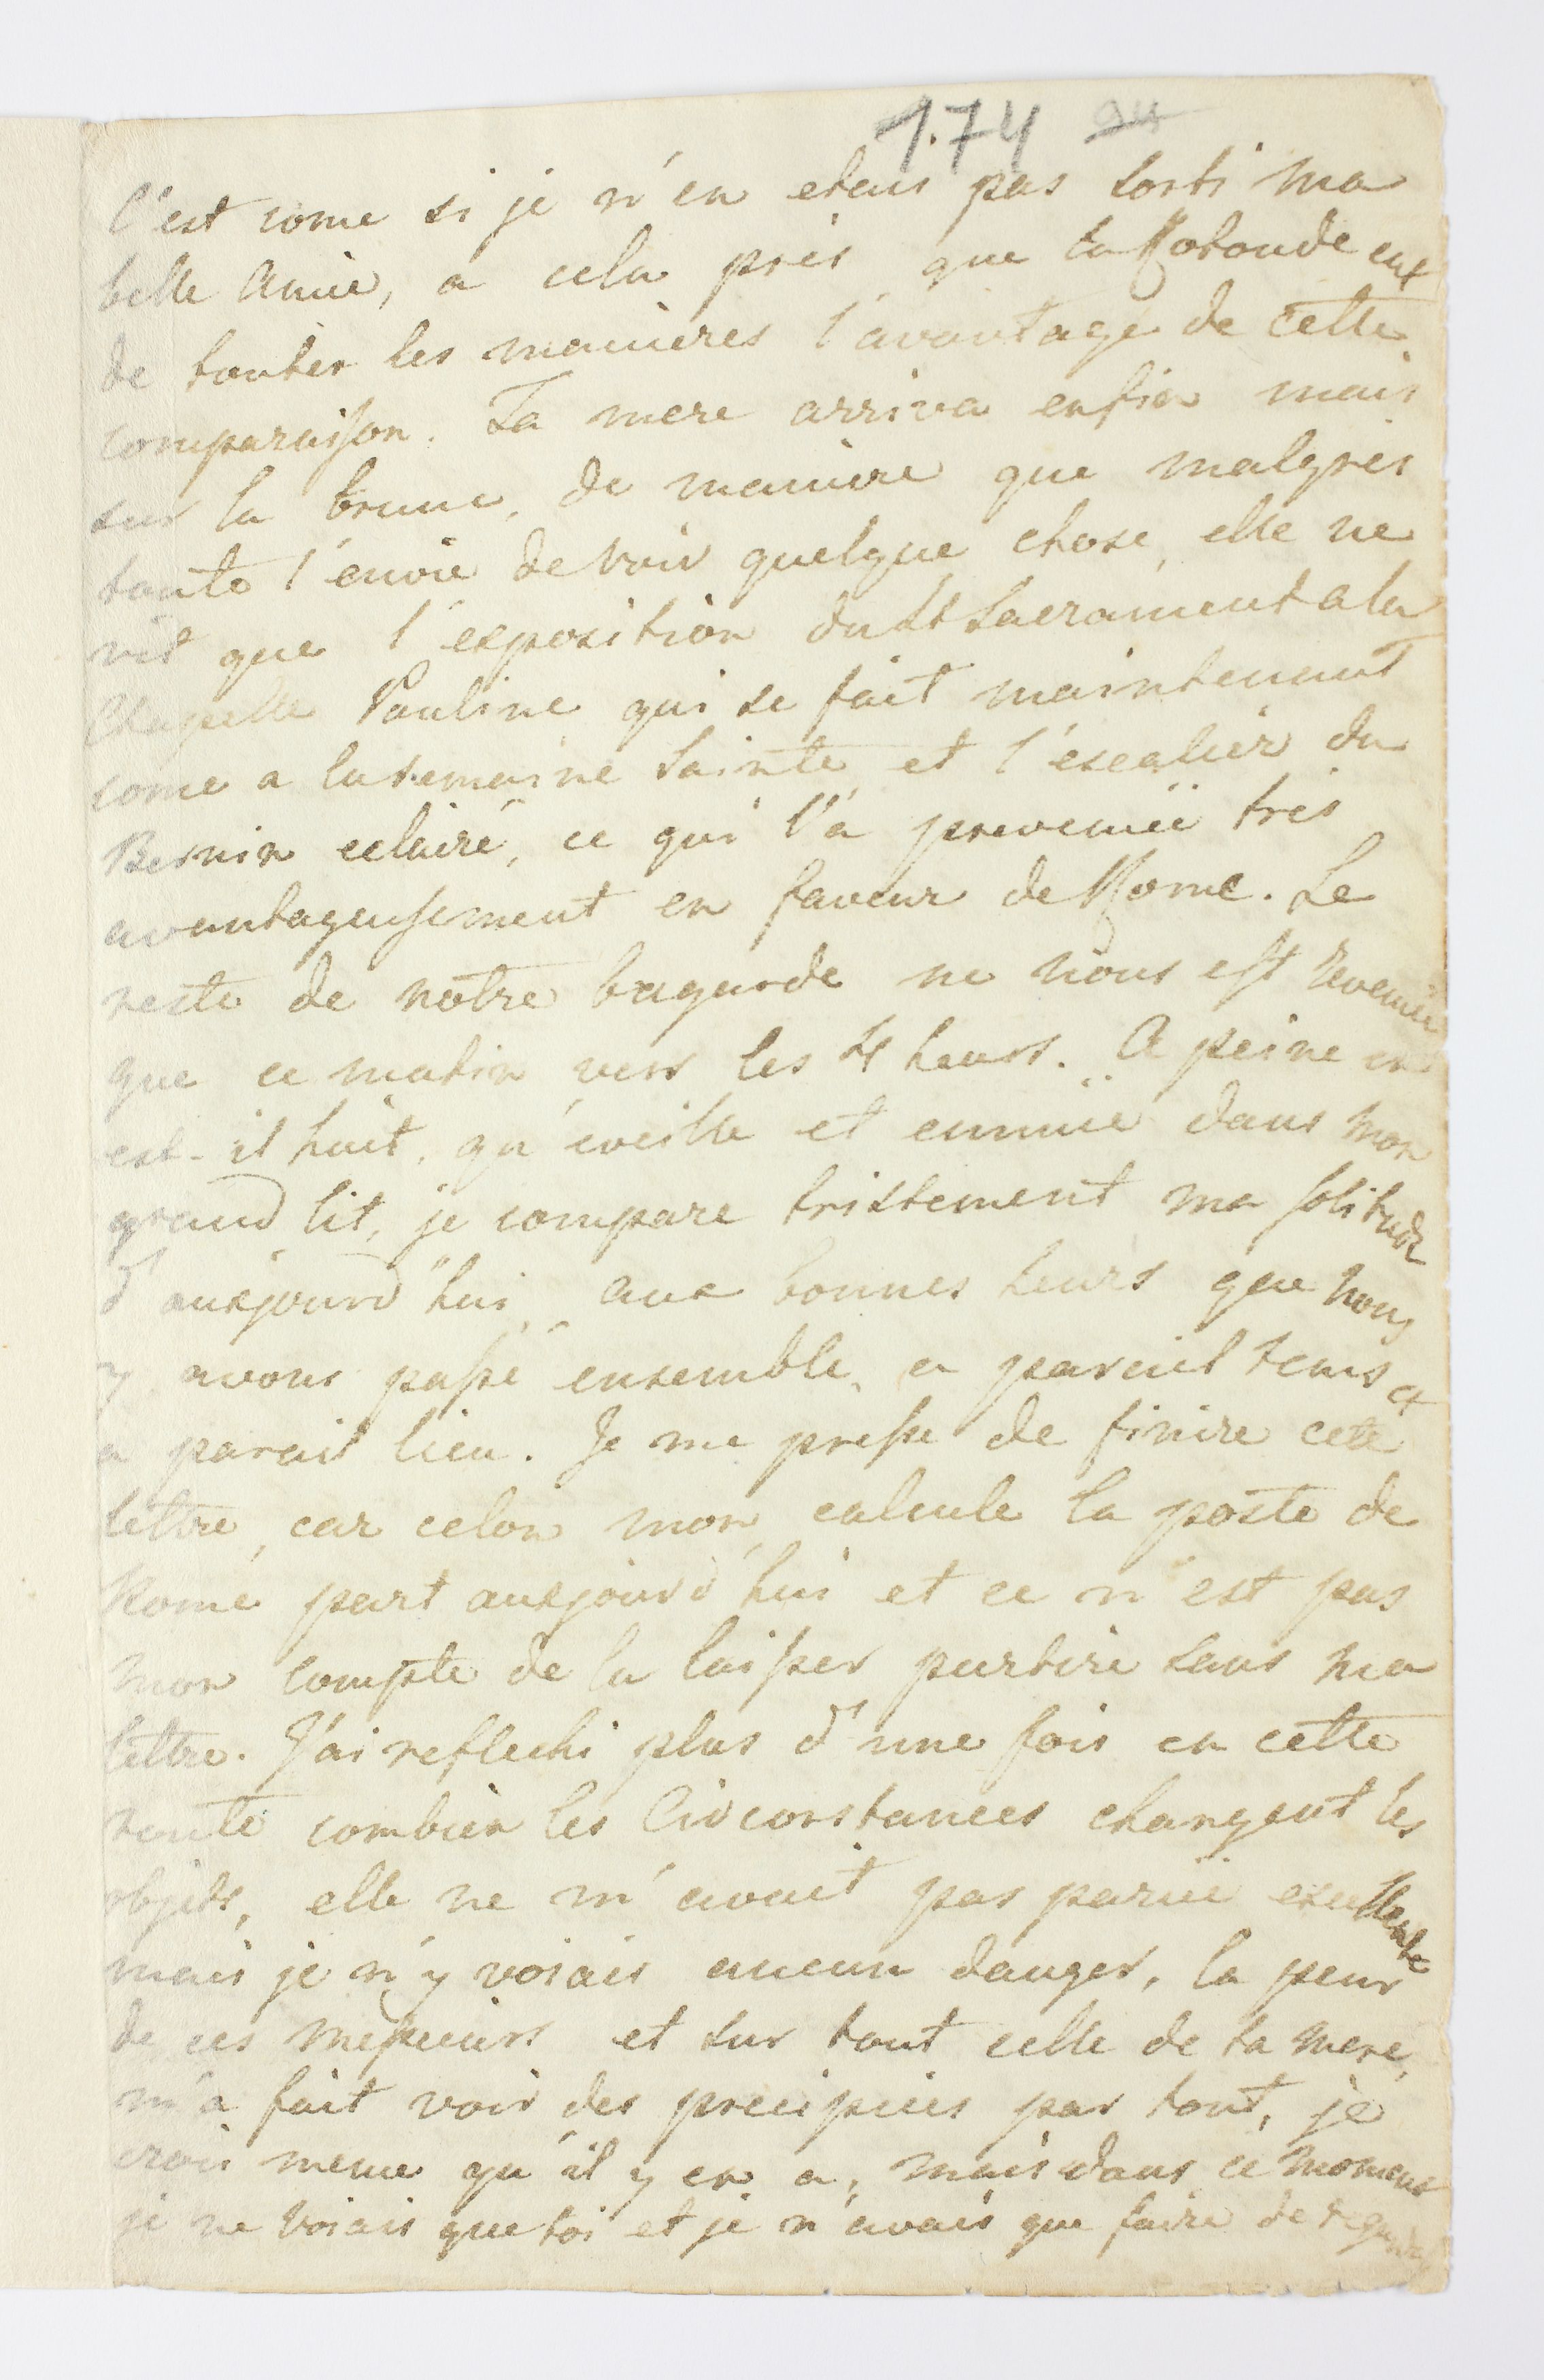 1.74 94
C'est come si je n'en etais pas sorti ma
belle Amie, a cela près que ta Rotonde eut
de toutes les manieres l'avantage de cette
comparaison. Ta mere arriva enfin mais
sur la brune, de maniere que malgrès
toute l'envie de voir quelque chose, elle ne
vit que l'exposition du St Sacrament a la
Chapelle Pauline qui se fait maintenant
come a la semaine Sainte et l'escalier du
Bernin eclairé, ce qui l'a prevenüe très
avantageusement en faveur de Rome. Le
reste de notre bagarde ne nous est revenüe
que ce matin vers les 4 heurs. A peine en
est-il huit, qu'eveille et ennuié dans mon
grand lit, je compare tristement ma solitude
d'auxjourd'hui aux bonnes heurs que nous
y avons passé ensemble, a pareil tems et
a pareil lieu. Je me presse de finire cete
lettre, car celon mon calcule la poste de
Rome part auxjourd'hui et ce n'est pas
mon compte de la laisser partire sans ma
lettre. J'ai reflechi plus d'une fois en cette
route combien les Circonstances changent les
objets, elle ne m'avait pas parüe excellente
mais je n'y voiais aucun danger, la peur
de ces messieurs et sur tout celle de ta mere,
m'a fait voir des precipices par tout, je
crois meme qu'il y en a, mais dans ce moment
je ne voiais que toi et je n'avais que faire de regarder